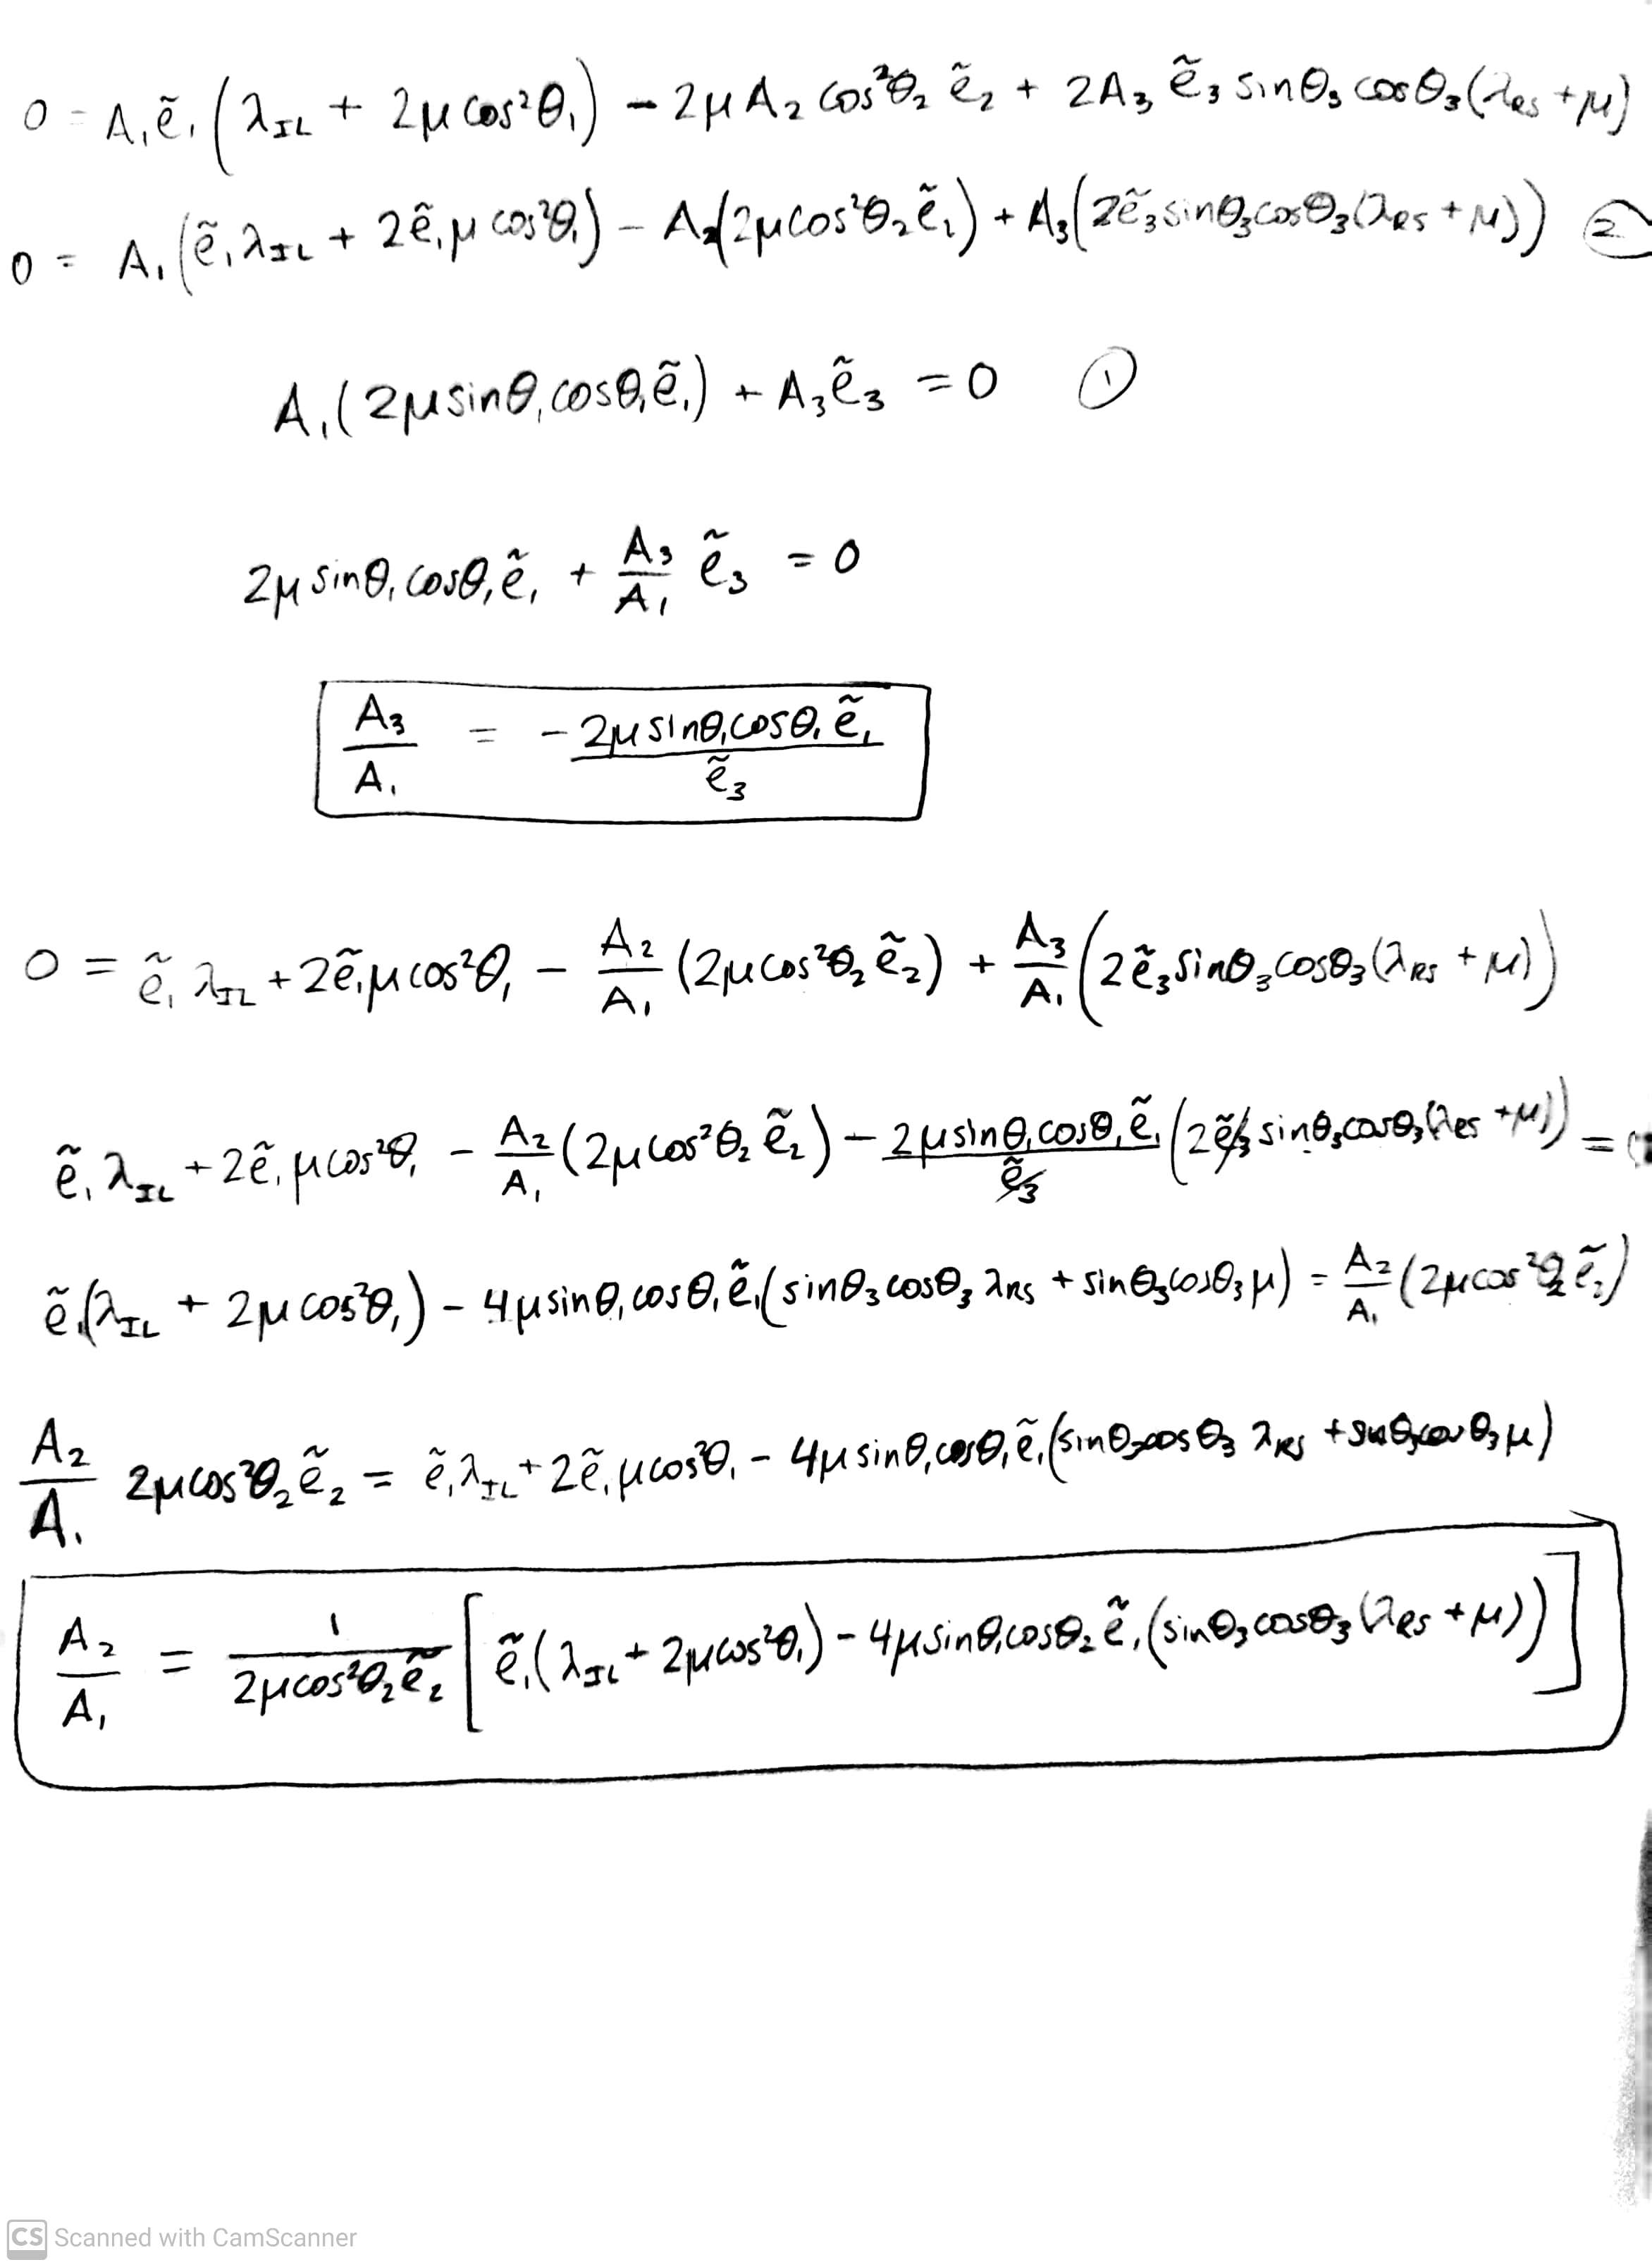 0 = A₁ẽ₁(λ_IL + 2μcos²θ₁) - 2μA₂cos²θ₂ ẽ₂ + 2A₃ ẽ₃ sinθ₃ cosθ₃(λ_RS + μ)
0 = A₁(ẽ₁λ_IL + 2ẽ₁μcos²θ₁) - A₂(2μcos²θ₂ẽ₂) + A₃(2ẽ₃sinθ₃cosθ₃(λ_RS + μ)) ②
A₁(2μsinθ₁cosθ₁ẽ₁) + A₃ẽ₃ = 0 ①
2μsinθ₁cosθ₁ẽ₁ + A₃/A₁ ẽ₃ = 0
A₃/A₁ = - 2μsinθ₁cosθ₁ẽ₁/ẽ₃
0 = ẽ₁λ_IL + 2ẽ₁μcos²θ₁ - A₂/A₁ (2μcos²θ₂ẽ₂) + A₃/A₁ (2ẽ₃sinθ₃cosθ₃(λ_RS + μ))
ẽ₁λ_IL + 2ẽ₁μcos²θ₁ - A₂/A₁ (2μcos²θ₂ẽ₂) - 2μsinθ₁cosθ₁ẽ₁/ẽ₃ (2ẽ₃sinθ₃cosθ₃(λ_RS + μ)) =
ẽ₁(λ_IL + 2μcos²θ₁) - 4μsinθ₁cosθ₁ẽ₁(sinθ₃cosθ₃λ_RS + sinθ₃cosθ₃μ) = A₂/A₁ (2μcos²θ₂ẽ₂)
A₂/A₁ 2μcos²θ₂ẽ₂ = ẽ₁λ_IL + 2ẽ₁μcos²θ₁ - 4μsinθ₁cosθ₁ẽ₁(sinθ₃cosθ₃λ_RS + sinθ₃cosθ₃μ)
A₂/A₁ = 1/2μcos²θ₂ẽ₂ [ẽ₁(λ_IL + 2μcos²θ₁) - 4μsinθ₁cosθ₂ẽ₁(sinθ₃cosθ₃(λ_RS + μ))]
CS Scanned with CamScanner